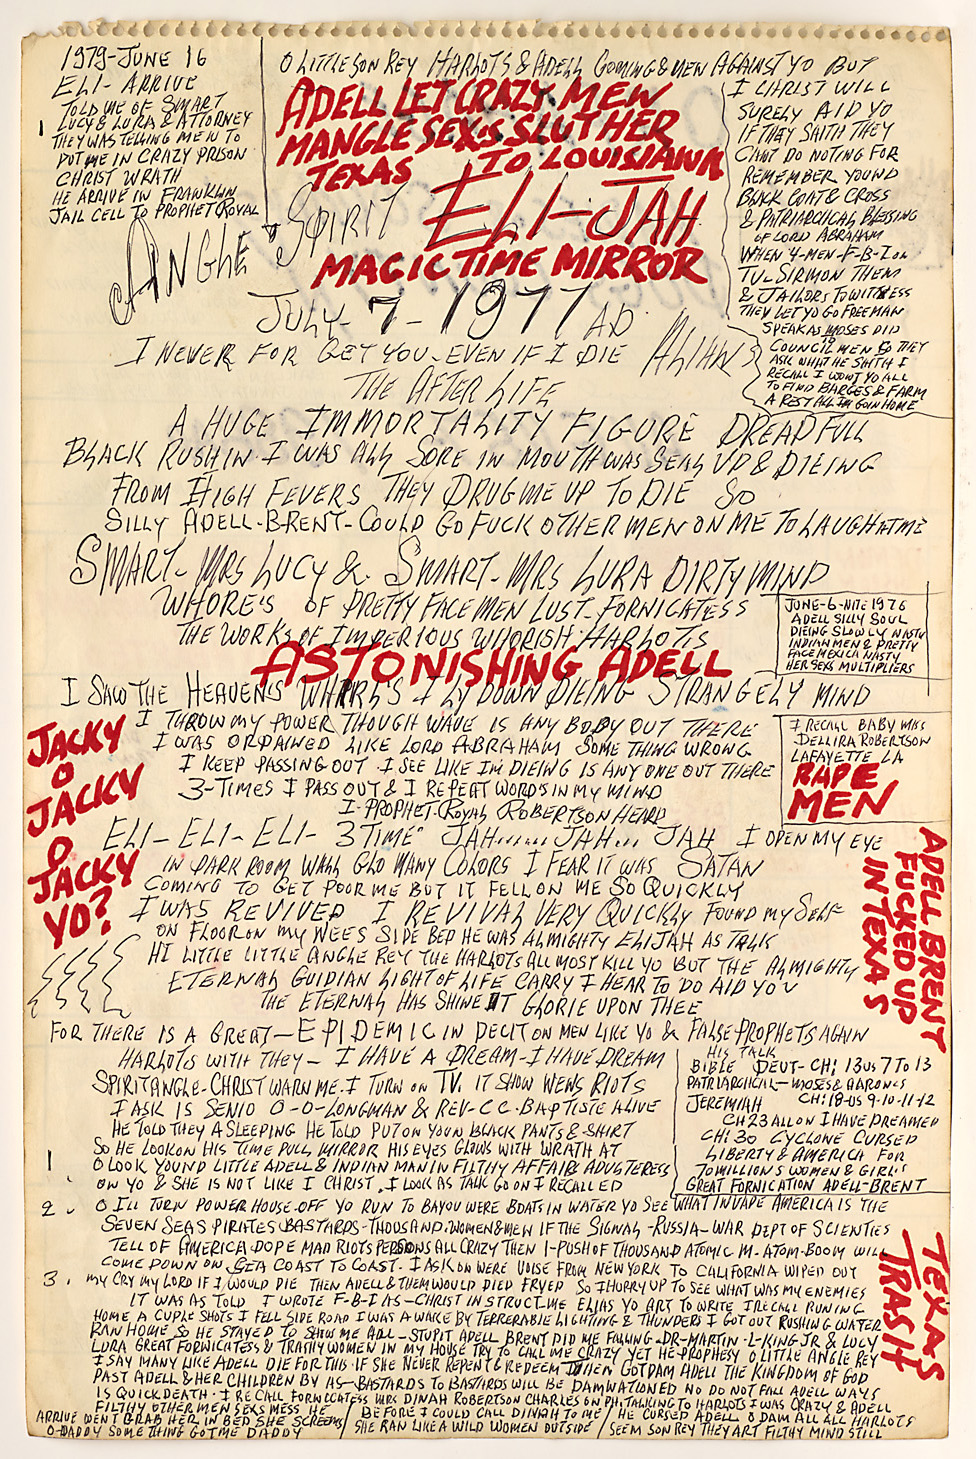 1979-JUNE 16
ELI-ARRIVE
TOLD ME OF SMART
LUCY & LURA & ATTORNEY
1 THEY WAS TELLING MEN TO
PUT ME IN CRAZY PRISON
CHRIST WRATH
HE ARRIVE IN FRANKLIN
JAIL CELL TO PROPHET ROYAL
O LITTLE SON REY HARLOTS & ADELL COMING & MEN AGAINST YO BUT
I CHRIST WILL
SURELY AID YO
IF THEY SAITH THEY
CANT DO NOTING FOR
REMEMBER YOUND
BLACK COAT & CROSS
& PATRIARCHICAL BLESSING
OF LORD ABRAHAM
WHEN 4-MEN-F-B-I ON
TV-SIRMON THEM
& JAILORS TO WITNESS
THEY LET YO GO FREEMAN
SPEAK AS MOSES DID
TO
COUNCIL MEN SO THEY
ASK WHAT HE SAITH I
RECALL I WONT YO ALL
TO FIND BARGES & FARM
A REST ALL IM GOIN HOME
ADELL LET CRAZY MEN
MANGLE SEXS SLUT HER
TEXAS TO LOUISIANA
ANGLE SPIRIT ELI-JAH
MAGIC TIME MIRROR
JULY-7-1977 AD
I NEVER FOR GET YOU-EVEN IF I DIE ALIAN
THE AFTER LIFE
A HUGE IMMORTALITY FIGURE DREADFULL
BLACK RUSHIN I WAS ALL SORE IN MOUTH WAS SEAL UP & DIEING
FROM HIGH FEVERS THEY DRUG ME UP TO DIE SO
SILLY ADELL-BRENT-COULD GO FUCK OTHER MEN ON ME TO LAUGH AT ME
SMART-MRS LUCY & SMART-MRS LURA DIRTY MIND
WHORE'S OF PRETTY FACE MEN LUST-FORNICATESS
THE WORKS OF IMPERIOUS WHORISH HARLOTS
JUNE-6-NITE 1976
ADELL SILLY SOUL
DIEING SLOWLY NASTY
INDIAN MEN & PRETTY
FACE MEXICA NASTY
HER SEXS MULTIPLIERS
ASTONISHING ADELL
I SAW THE HEAVENS WHARL'S I LY DOWN DIEING STRANGELY MIND
JACKY
O
JACKY
O
JACKY
YO?
I THROW MY POWER THOUGH WAVE IS ANY BODY OUT THERE
I WAS ORDAINED LIKE LORD ABRAHAM SOME THING WRONG
I KEEP PASSING OUT I SEE LIKE IM DIEING IS ANY ONE OUT THERE
3-TIMES I PASS OUT & I REPEAT WORDS IN MY MIND
I-PROPHET-ROYAL ROBERTSON HEARD
I RECALL BABY MRS
DELLIRA ROBERTSON
LAFAYETTE LA
RAPE
MEN
ELI-ELI-ELI-3 TIME JAH....... JAH.... JAH I OPEN MY EYE
IN DARK ROOM WALL GLO MANY COLORS I FEAR IT WAS SATAN
COMING TO GET POOR ME BUT IT FELL ON ME SO QUICKLY
I WAS REVIVED I REVIVAL VERY QUICKLY FOUND MY SELF
ON FLOOR ON MY NEES SIDE BED HE WAS ALMIGHTY ELIJAH AS TALK
HI LITTLE LITTLE ANGLE REY THE HARLOTS ALL MOST KILL YO BUT THE ALMIGHTY
ETERNAL GUIDIAN LIGHT OF LIFE CARRY I HEAR TO DO AID YOU
THE ETERNAL HAS SHINE IT GLORIE UPON THEE
ADELL BRENT
FUCKED UP
IN TEXAS
FOR THERE IS A GREAT-EPIDEMIC IN DECIT ON MEN LIKE YO & FALSE PROPHETS AGAIN
HARLOTS WITH THEY-I HAVE A DREAM-I HAVE DREAM
SPIRIT ANGLE-CHRIST WARN ME-I TURN ON TV. IT SHOW NEWS RIOTS
I ASK IS SENIO O-O-LONGMAN & REV-C C-BAPTISTE ALIVE
HE TOLD THEY A SLEEPING HE TOLD PUT ON YOUN BLACK PANTS & SHIRT
SO HE LOOK ON HIS TIME PULL MIRROR HIS EYES GLOWS WITH WRATH AT
1 O LOOK YOUND LITTLE ADELL & INDIAN MAN IN FILTHY AFFAIRS ADULTERESS
ON YO & SHE IS NOT LIKE I CHRIST, I LOOK AS TALK GO ON I RECALLED
HIS TALK
BIBLE DEUT-CH; 13 US 7 TO 13
PATRIARCHICAL-MOSES & AARON'S
JEREMIAH CH; 18-US 9-10-11-12
CH 23 ALL ON I HAVE DREAMED
CH; 30 CYCLONE CURSED
LIBERTY & AMERICA FOR
70 MILLIONS WOMEN & GIRL'S
GREAT FORNICATION ADELL-BRENT
2. O ILL TURN POWER HOUSE OFF YO RUN TO BAYOU WERE BOATS IN WATER YO SEE WHAT INVADE AMERICA IS THE
SEVEN SEAS PIRATES BASTARDS-THOUSAND-WOMEN & MEN IF THE SIGNAL-RUSSIA-WAR DEPT OF SCIENTIES
TELL OF AMERICA DOPE MAD RIOTS PERSONS ALL CRAZY THEN I-PUSH OF THOUSAND ATOMIC M-ATOM-BOOM WILL
COME DOWN ON SEA COAST TO COAST. I ASK ON WERE VOISE FROM NEW YORK TO CALIFORNIA WIPED OUT
3. MY CRY MY LORD IF I WOULD DIE THEN ADELL & THEM WOULD DIED FRYED SO I HURRY UP TO SEE WHAT WAS MY ENEMIES
IT WAS AS TOLD I WROTE F-B-I AS-CHRIST INSTRUCT ME ELIAS YO ART TO WRITE I RECALL RUNING
HOME A CUPLE SHOTS I FELL SIDE ROAD I WAS AWAKE BY TERRERABLE LIGHTING & THUNDERS I GOT OUT RUSHING WATER
RAN HOME SO HE STAYED TO SHOW ME ADL-STUPIT ADELL BRENT DID ME FILLING-DR-MARTIN-L-KING JR & LUCY
LURA GREAT FORNICATESS & TRASHY WOMEN IN MY HOUSE TRY TO CALL ME CRAZY YET HE PROPHESY O LITTLE ANGLE REY
I SAY MANY LIKE ADELL DIE FOR THIS-IF SHE NEVER REPENT & REDEEM THEN GOTDAM ADELL THE KINGDOM OF GOD
PAST ADELL & HER CHILDREN BY AS-BASTARDS TO BASTARDS WILL BE DAMNATIONED NO DO NOT FALL ADELL WAYS
IS QUICK DEATH-I RECALL FORNICATESS MRS DINAH ROBERTSON CHARLES ON PH, TALKING TO HARLOTS I WAS CRAZY & ADELL
FILTHY OTHER MEN SEXS MESS HE
ARRIVE WENT GRAB HER IN BED SHE SCREEMS
O-DADDY SOME THING GOT ME DADDY
BEFORE I COULD CALL DINAH TO ME
SHE RAN LIKE A WILD WOMEN OUTSIDE
HE CURSED ADELL O DAM ALL ALL HARLOTS
SEEM SON REY THEY ART FILTHY MIND STILL
TEXAS
TRASH